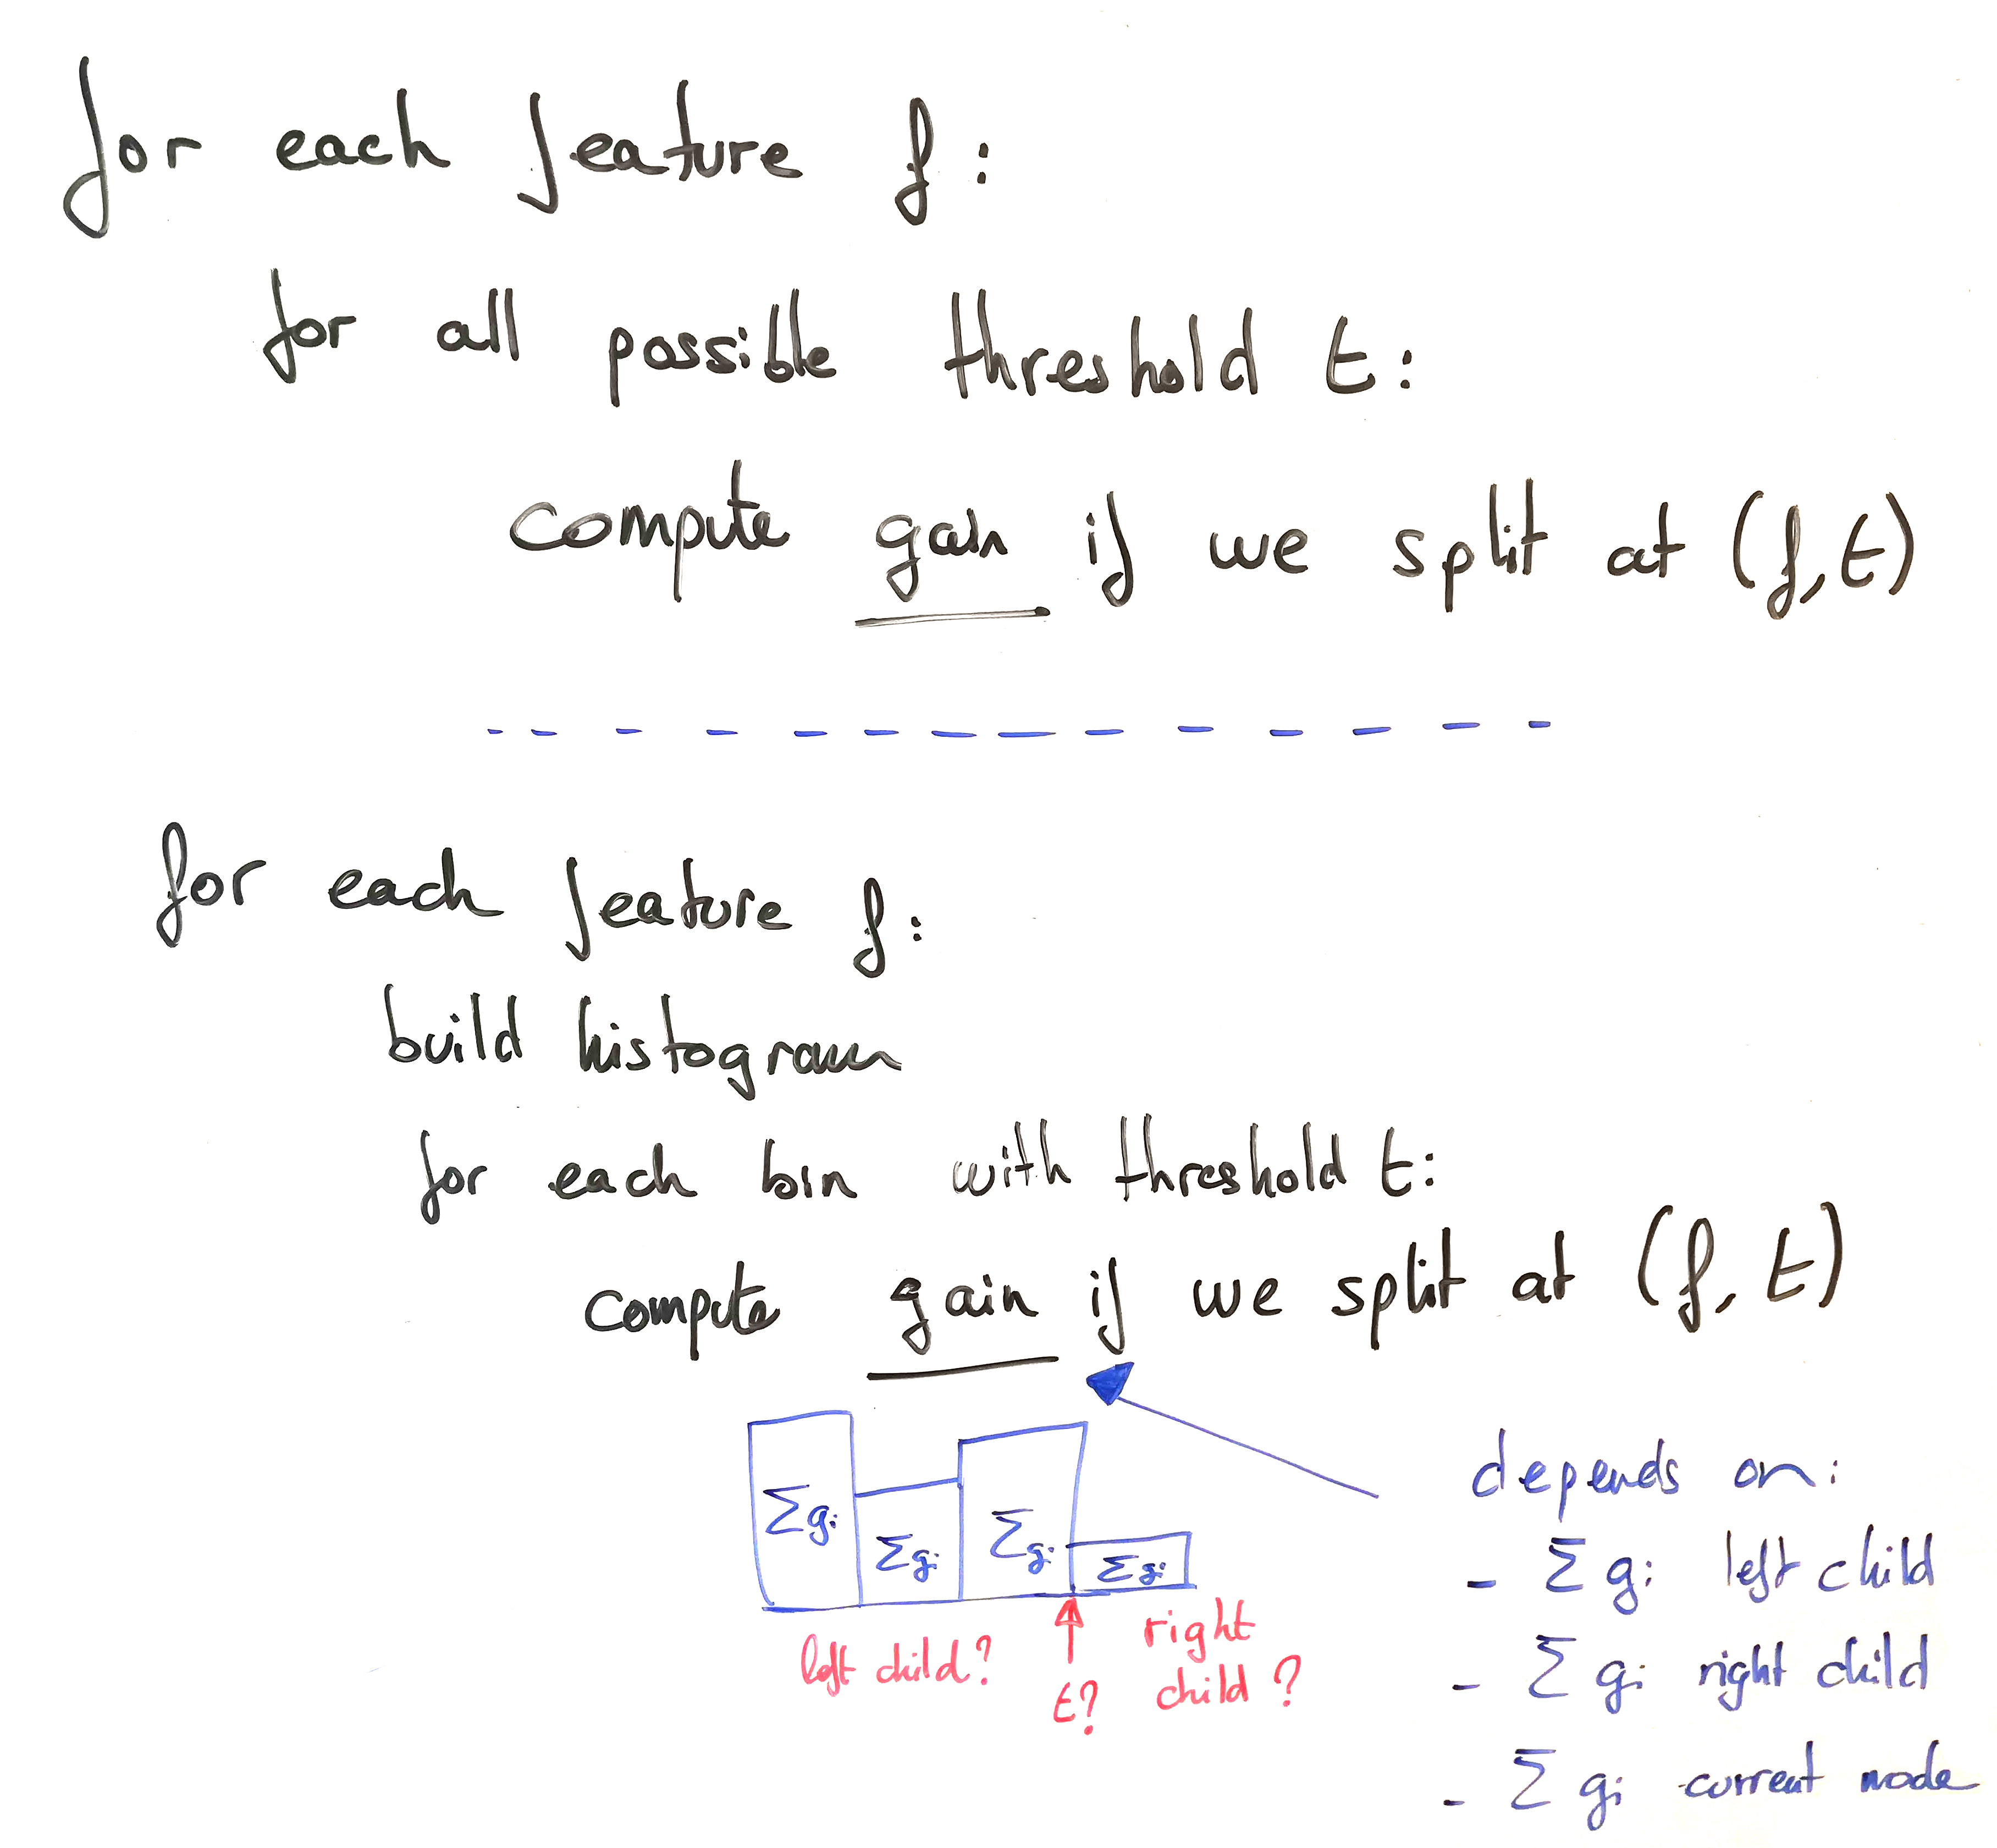 for each feature f:
for all possible threshold t:
compute gain if we split at (f,t)
for each feature f:
build histogram
for each bin with threshold t:
compute gain if we split at (f, t)
Σgi
Σgi
Σgi
Σgi
left child?
t?
right
child?
depends on:
- Σ gi left child
- Σ gi right child
- Σ gi current node